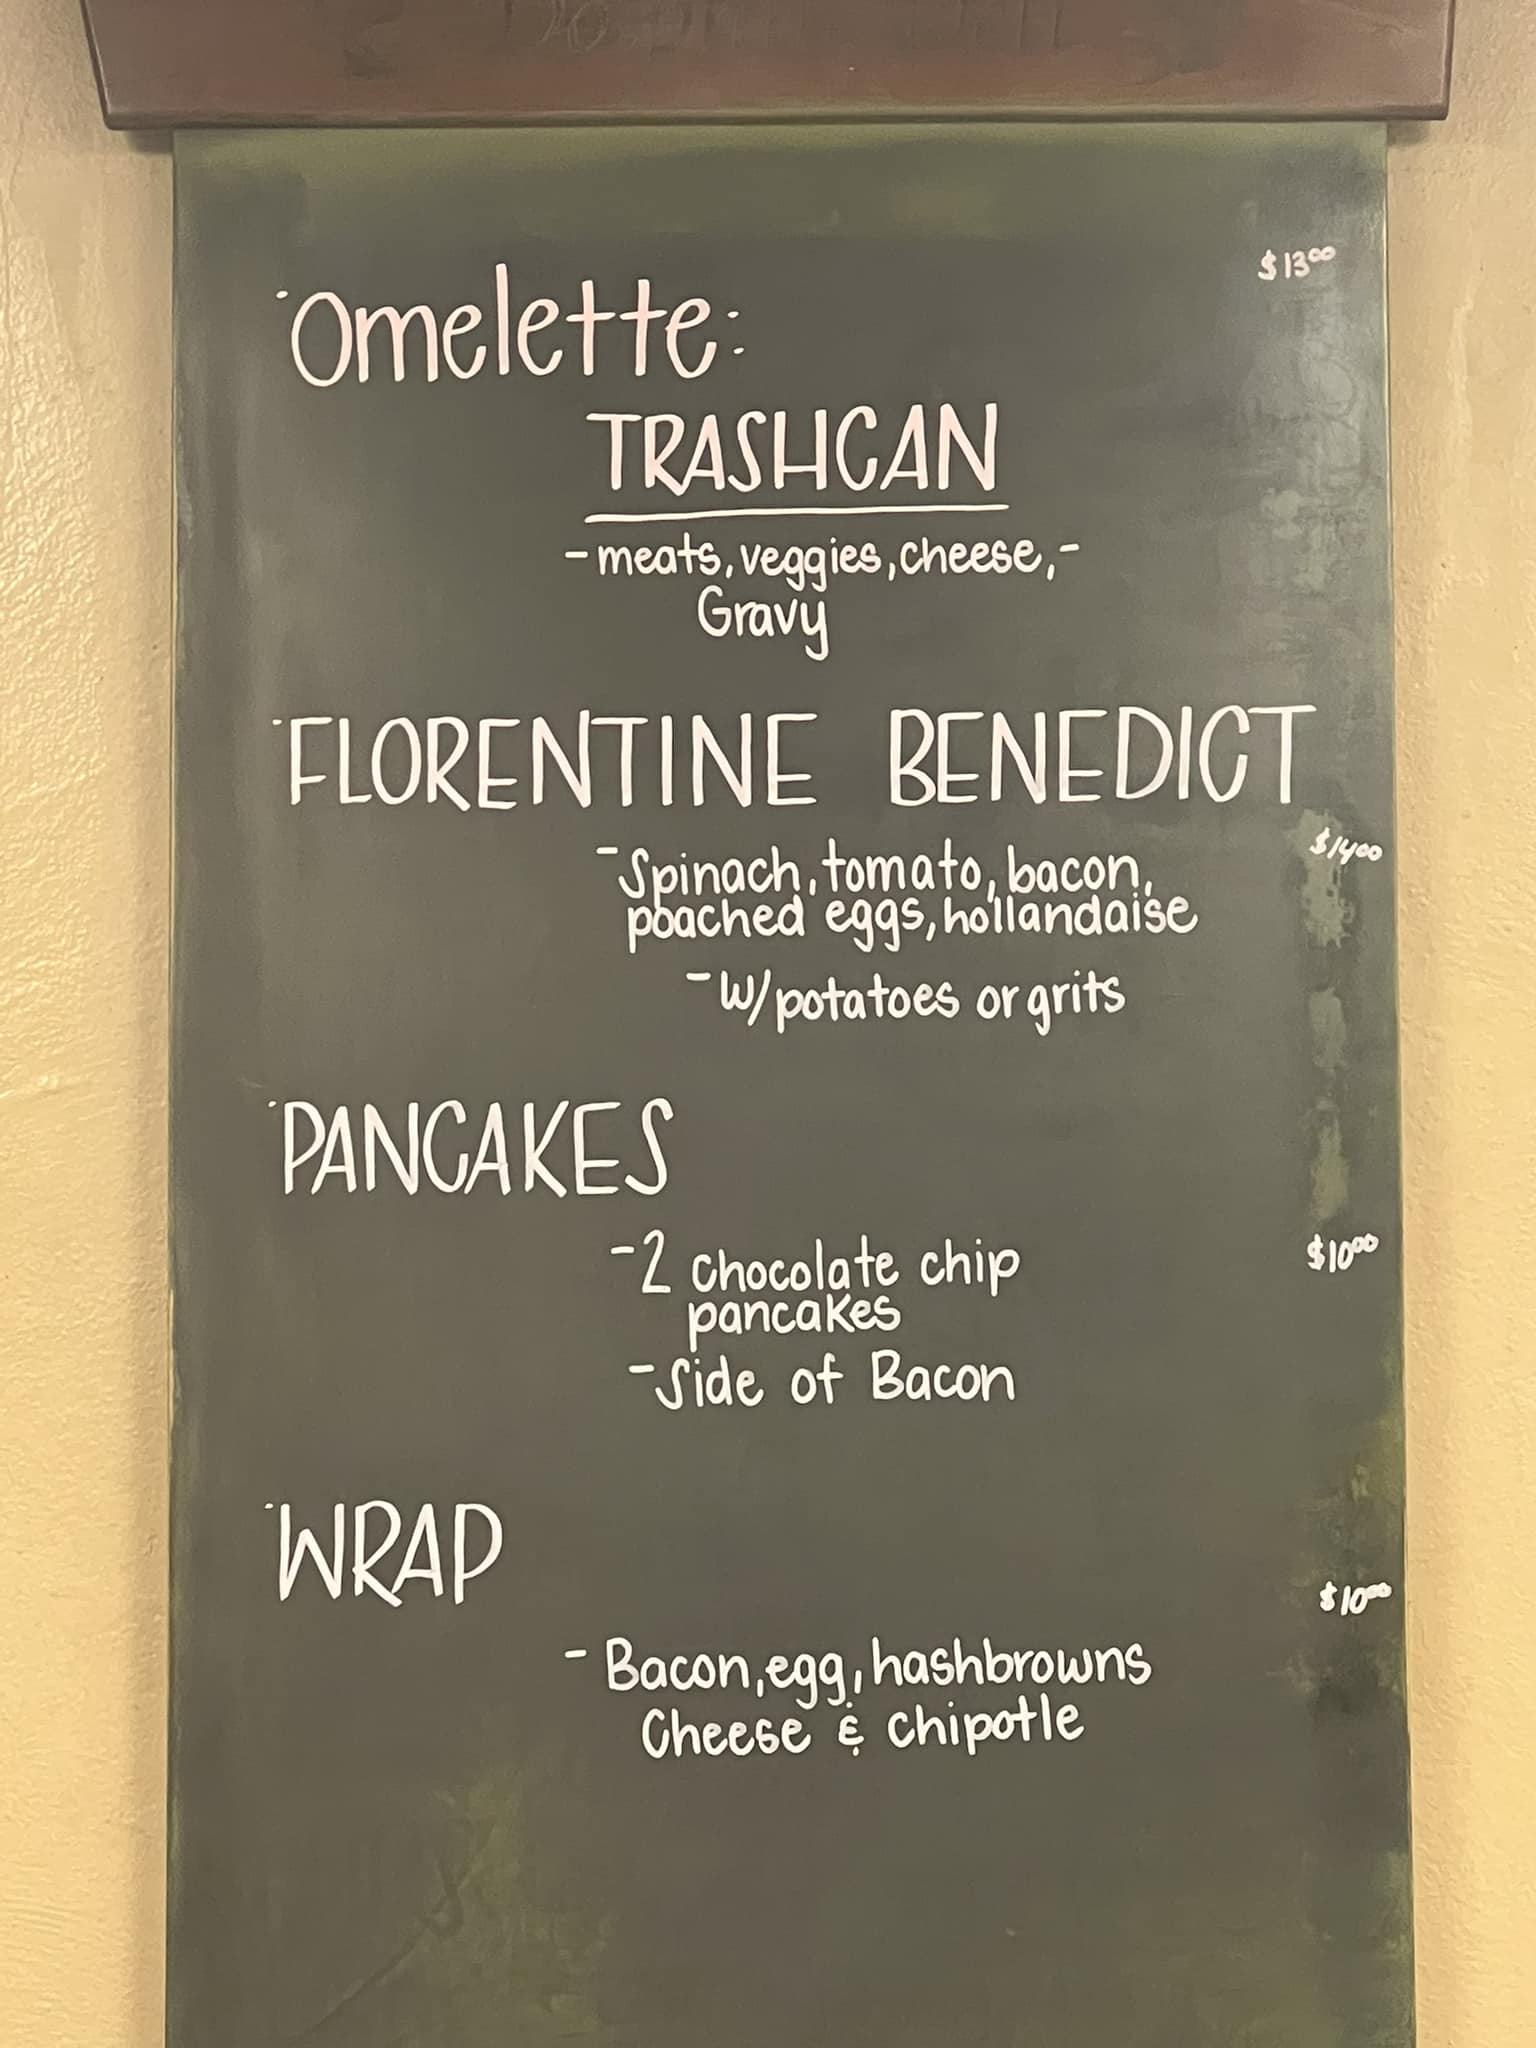 Omelette: $13.00
TRASHCAN
- meats, veggies, cheese, -
Gravy
FLORENTINE BENEDICT
$14.00
- Spinach, tomato, bacon,
poached eggs, hollandaise
- w/potatoes or grits
PANCAKES
- 2 chocolate chip $10.00
pancakes
- Side of Bacon
WRAP
$10.00
- Bacon, egg, hashbrowns
Cheese & chipotle